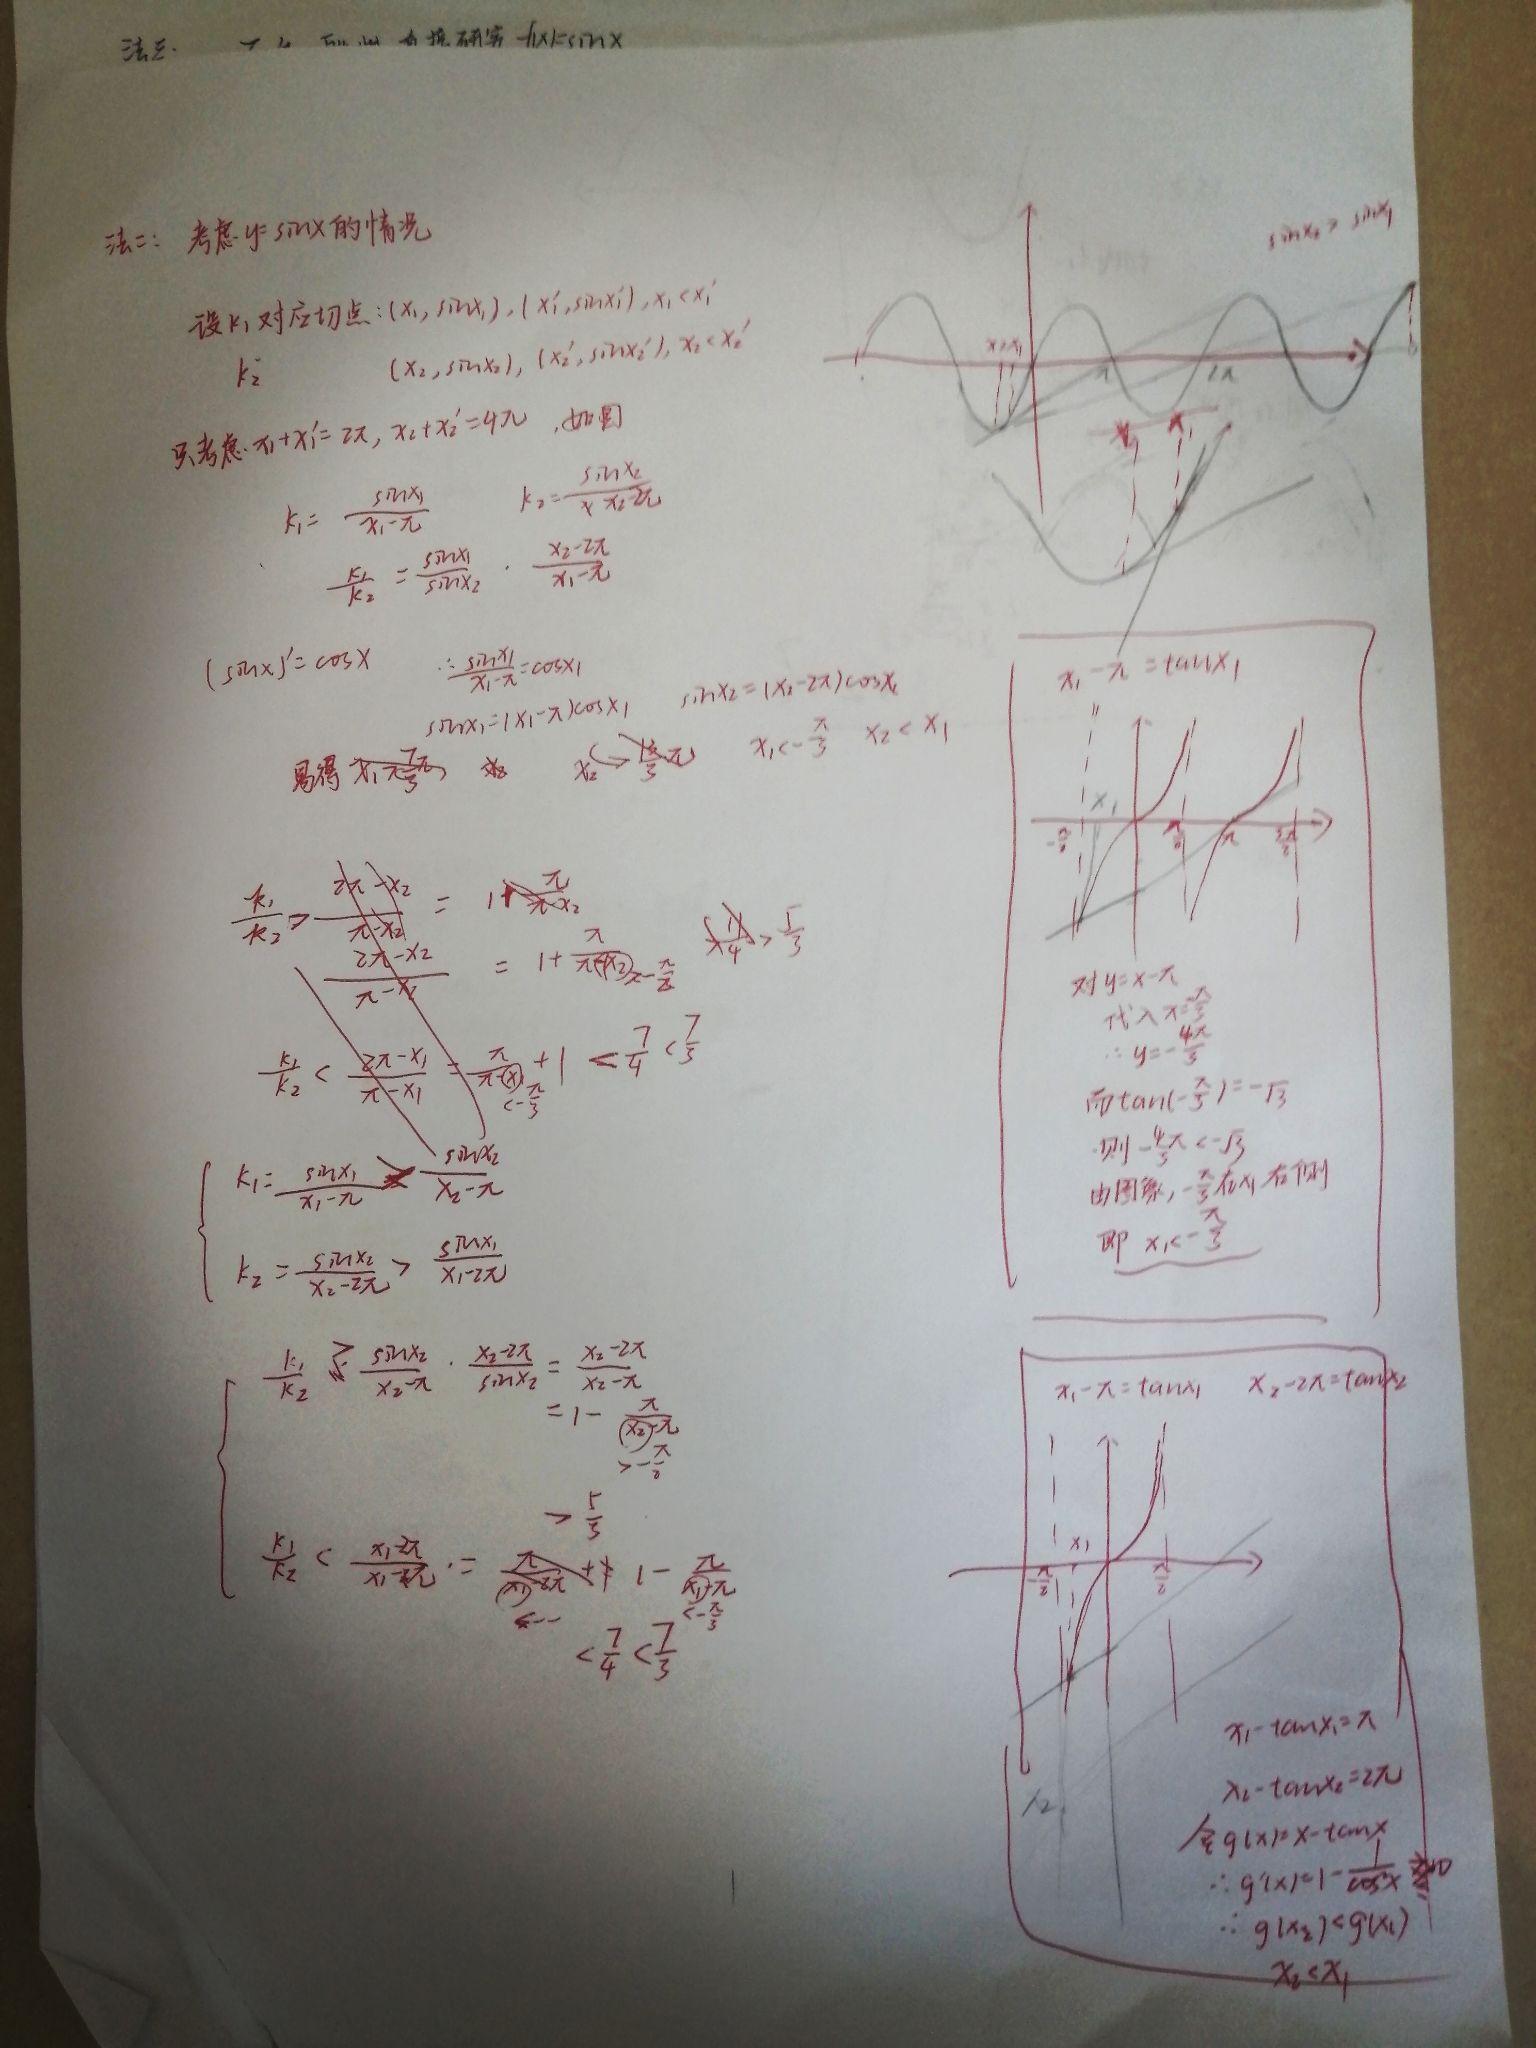 法三: 直接研究 f(x)=sinx
法二: 考虑y=sinx的情况
设k₁对应切点:(x₁,sinx₁),(x₁',sinx₁'),x₁<x₁'
k₂ (x₂,sinx₂),(x₂',sinx₂'),x₂<x₂'
只考虑x₁+x₁'=2π,x₂+x₂'=4π,如图
k₁=sinx₁/(x₁-π) k₂=sinx₂/(x₂-2π)
k₁/k₂=sinx₁/sinx₂·(x₂-2π)/(x₁-π)
(sinx)'=cosx ∴sinx₁/(x₁-π)=cosx₁
sinx₁=(x₁-π)cosx₁ sinx₂=(x₂-2π)cosx₂
易得 x₁<-π/3 x₂<x₁
k₁/k₂> (2π-x₂)/(π-x₂) = 1+π/(π-x₂)
(2π-x₂)/(π-x₂) = 1+π/(π-x₂) >-π/2 >5/3
k₁/k₂<(2π-x₁)/(π-x₁)=π/(π-x₁)+1<7/4<7/3
<-π/3
k₁=sinx₁/(x₁-π)>sinx₂/(x₂-π)
k₂=sinx₂/(x₂-2π)>sinx₁/(x₁-2π)
k₁/k₂>sinx₂/(x₂-π)·(x₂-2π)/sinx₂=(x₂-2π)/(x₂-π)
=1-π/(x₂-π)
>-π/2
>5/3
k₁/k₂<(x₁-2π)/(x₁-π)=1-π/(x₁-π)
<-π/3
<7/4<7/3
sinx₂>sinx₁
x₂ x₁ π 2π
x₁-π=tanx₁
x₁
-π/2 π/2 π 3π/2
对y=x-π
代入x=-π/3
∴y=-4π/3
而tan(-π/3)=-√3
则-4π/3<-√3
由图象,-π/3在x₁右侧
即 x₁<-π/3
x₁-π=tanx₁ x₂-2π=tanx₂
x₁
-π/2 π/2
x₁-tanx₁=π
x₂-tanx₂=2π
令g(x)=x-tanx
∴g'(x)=1-1/cos²x≤0
∴g(x₂)<g(x₁)
x₂<x₁